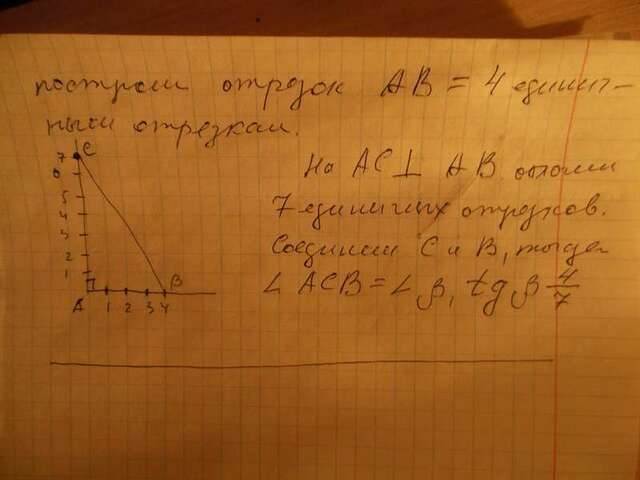 построим отрезок AB = 4 единич-
ным отрезкам.
На AC ⊥ AB отложим
7 единичных отрезков.
Соединим C и B, тогда
∠ ACB = ∠ β, tg β 4/7
C
7
6
5
4
3
2
1
A 1 2 3 4
B